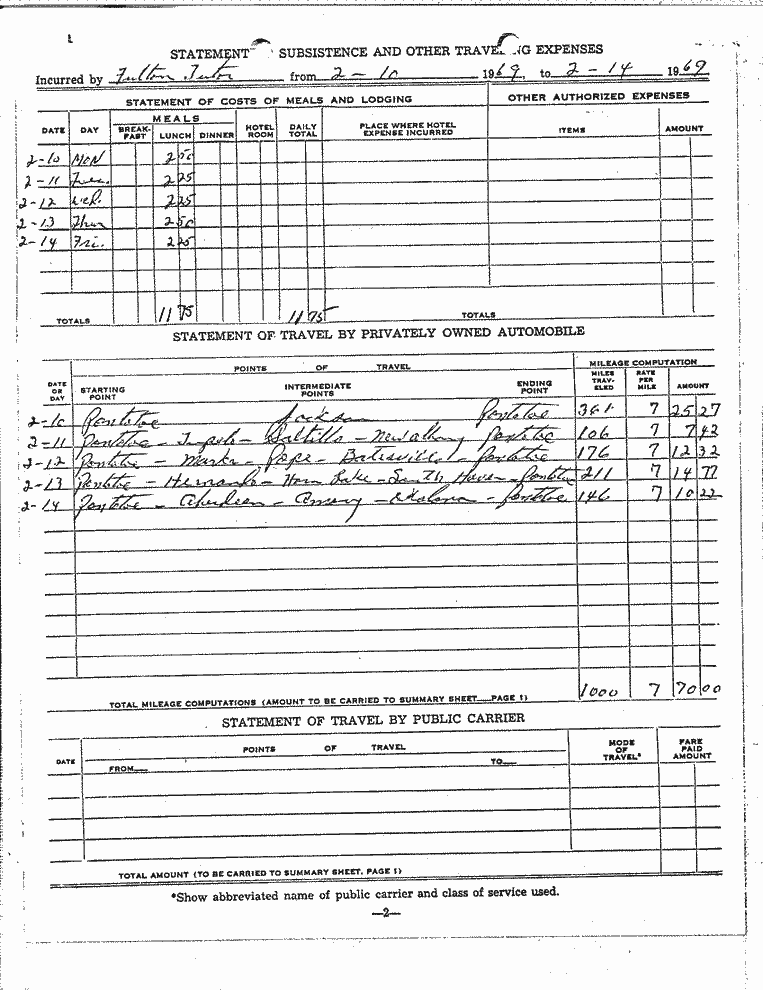 STATEMENT SUBSISTENCE AND OTHER TRAVEL ING EXPENSES
Incurred by Fulton Tutor from 2-10 1969, to 2-14 1969
STATEMENT OF COSTS OF MEALS AND LODGING OTHER AUTHORIZED EXPENSES
DATE DAY MEALS BREAK-FAST LUNCH DINNER HOTEL ROOM DAILY TOTAL PLACE WHERE HOTEL EXPENSE INCURRED ITEMS AMOUNT
2-10 MON 2 50
2-11 Tues. 2 25
2-12 Wed. 2 25
2-13 Thur 2 50
2-14 Fri. 2 25
TOTALS 11 75 11 75 TOTALS
STATEMENT OF TRAVEL BY PRIVATELY OWNED AUTOMOBILE
DATE OR DAY POINTS OF TRAVEL STARTING POINT INTERMEDIATE POINTS ENDING POINT MILEAGE COMPUTATION MILES TRAV-ELED RATE PER MILE AMOUNT
2-10 Pontotoc Jackson Pontotoc 361 7 25 27
2-11 Pontotoc - Tupelo - Saltillo - New albany Pontotoc 106 7 7 42
2-12 Pontotoc - Marks - Pope - Batesville - Pontotoc 176 7 12 32
2-13 Pontotoc - Hernando - Horn Lake - South Haven - Pontotoc 211 7 14 77
2-14 Pontotoc - Aberdeen - Amory - Okolona - Pontotoc 146 7 10 22
TOTAL MILEAGE COMPUTATIONS (AMOUNT TO BE CARRIED TO SUMMARY SHEET PAGE 1) 1000 7 70 00
STATEMENT OF TRAVEL BY PUBLIC CARRIER
DATE POINTS OF TRAVEL FROM TO MODE OF TRAVEL* FARE PAID AMOUNT
TOTAL AMOUNT (TO BE CARRIED TO SUMMARY SHEET, PAGE 1)
*Show abbreviated name of public carrier and class of service used.
—2—